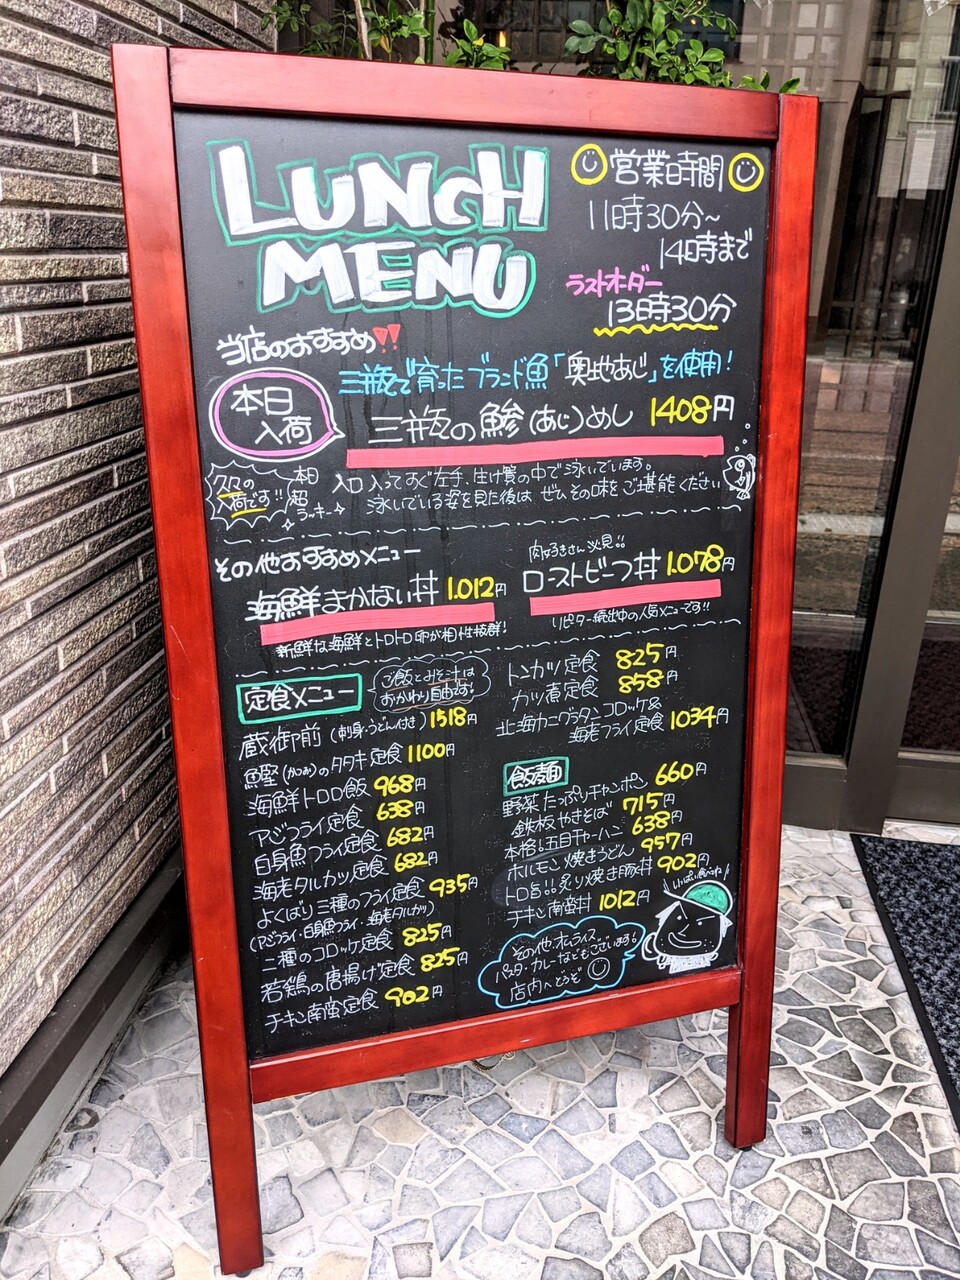 LUNCH
MENU
営業時間
11時30分~
14時まで
ラストオーダー
13時30分
当店のおすすめ!!
三瓶で育ったブランド魚「奥地あじ」を使用!
本日
入荷
三瓶の鯵(あじ)めし 1408円
久々の
入荷です!!
本日
超
ラッキー
入口入ってすぐ左手、生け簀の中で泳いでいます。
泳いでいる姿を見た後は ぜひその味をご堪能ください
その他おすすめメニュー
海鮮まかない丼 1.012円
新鮮な海鮮とトロトロ卵が相性抜群!
肉好きさん必見!!
ローストビーフ丼 1.078円
リピーター続出中の人気メニューです!!
定食メニュー
ご飯とみそ汁は
おかわり自由です!
蔵御前(刺身・うどん付き) 1518円
鰹(かつお)のタタキ定食 1100円
海鮮トロロ飯 968円
アジフライ定食 638円
白身魚フライ定食 682円
海老タルカツ定食 682円
よくばり三種のフライ定食 935円
(アジフライ・白身魚フライ・海老タルカツ)
二種のコロッケ定食 825円
若鶏の唐揚げ定食 825円
チキン南蛮定食 902円
トンカツ定食 825円
カツ煮定食 858円
北海カニグラタンコロッケ&
海老フライ定食 1034円
飯麺
野菜たっぷりチャンポン 660円
鉄板やきそば 715円
本格!五目チャーハン 638円
ホルモン焼きうどん 957円
トロ旨!!炙り焼き豚丼 902円
チキン南蛮丼 1012円
いっぱい食べてね!
その他オムライス、
カレーなどもございます!
店内へどうぞ